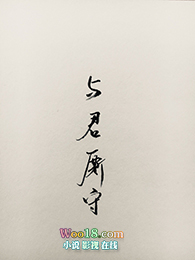 与君厮守
Woo18.com
小说 影视 在线